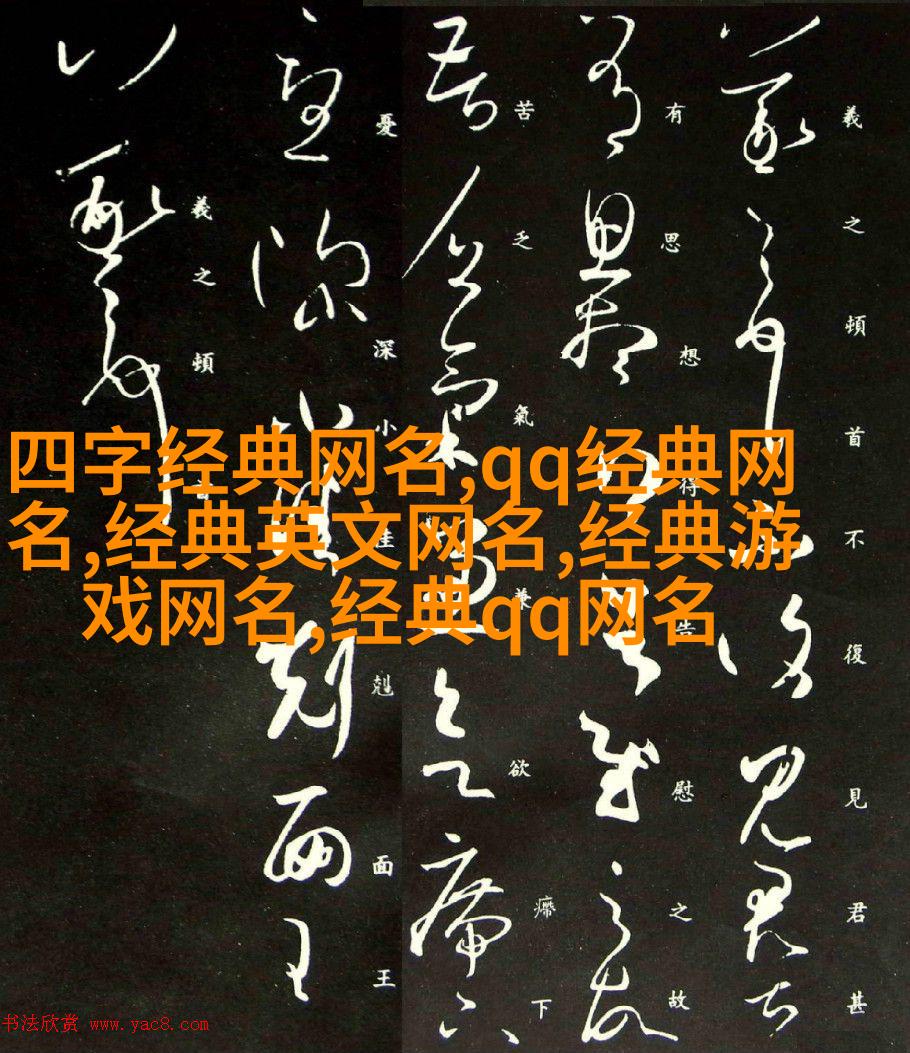 羲之頓首不復見君甚
有思想得告慰之故
苦乏氣兼欲㿃下
憂深小佳剋面王
羲之頓首
四字经典网名,qq经典网
名,经典英文网名,经典游
戏网名,经典qq网名
书法欣赏 www.yac8.com